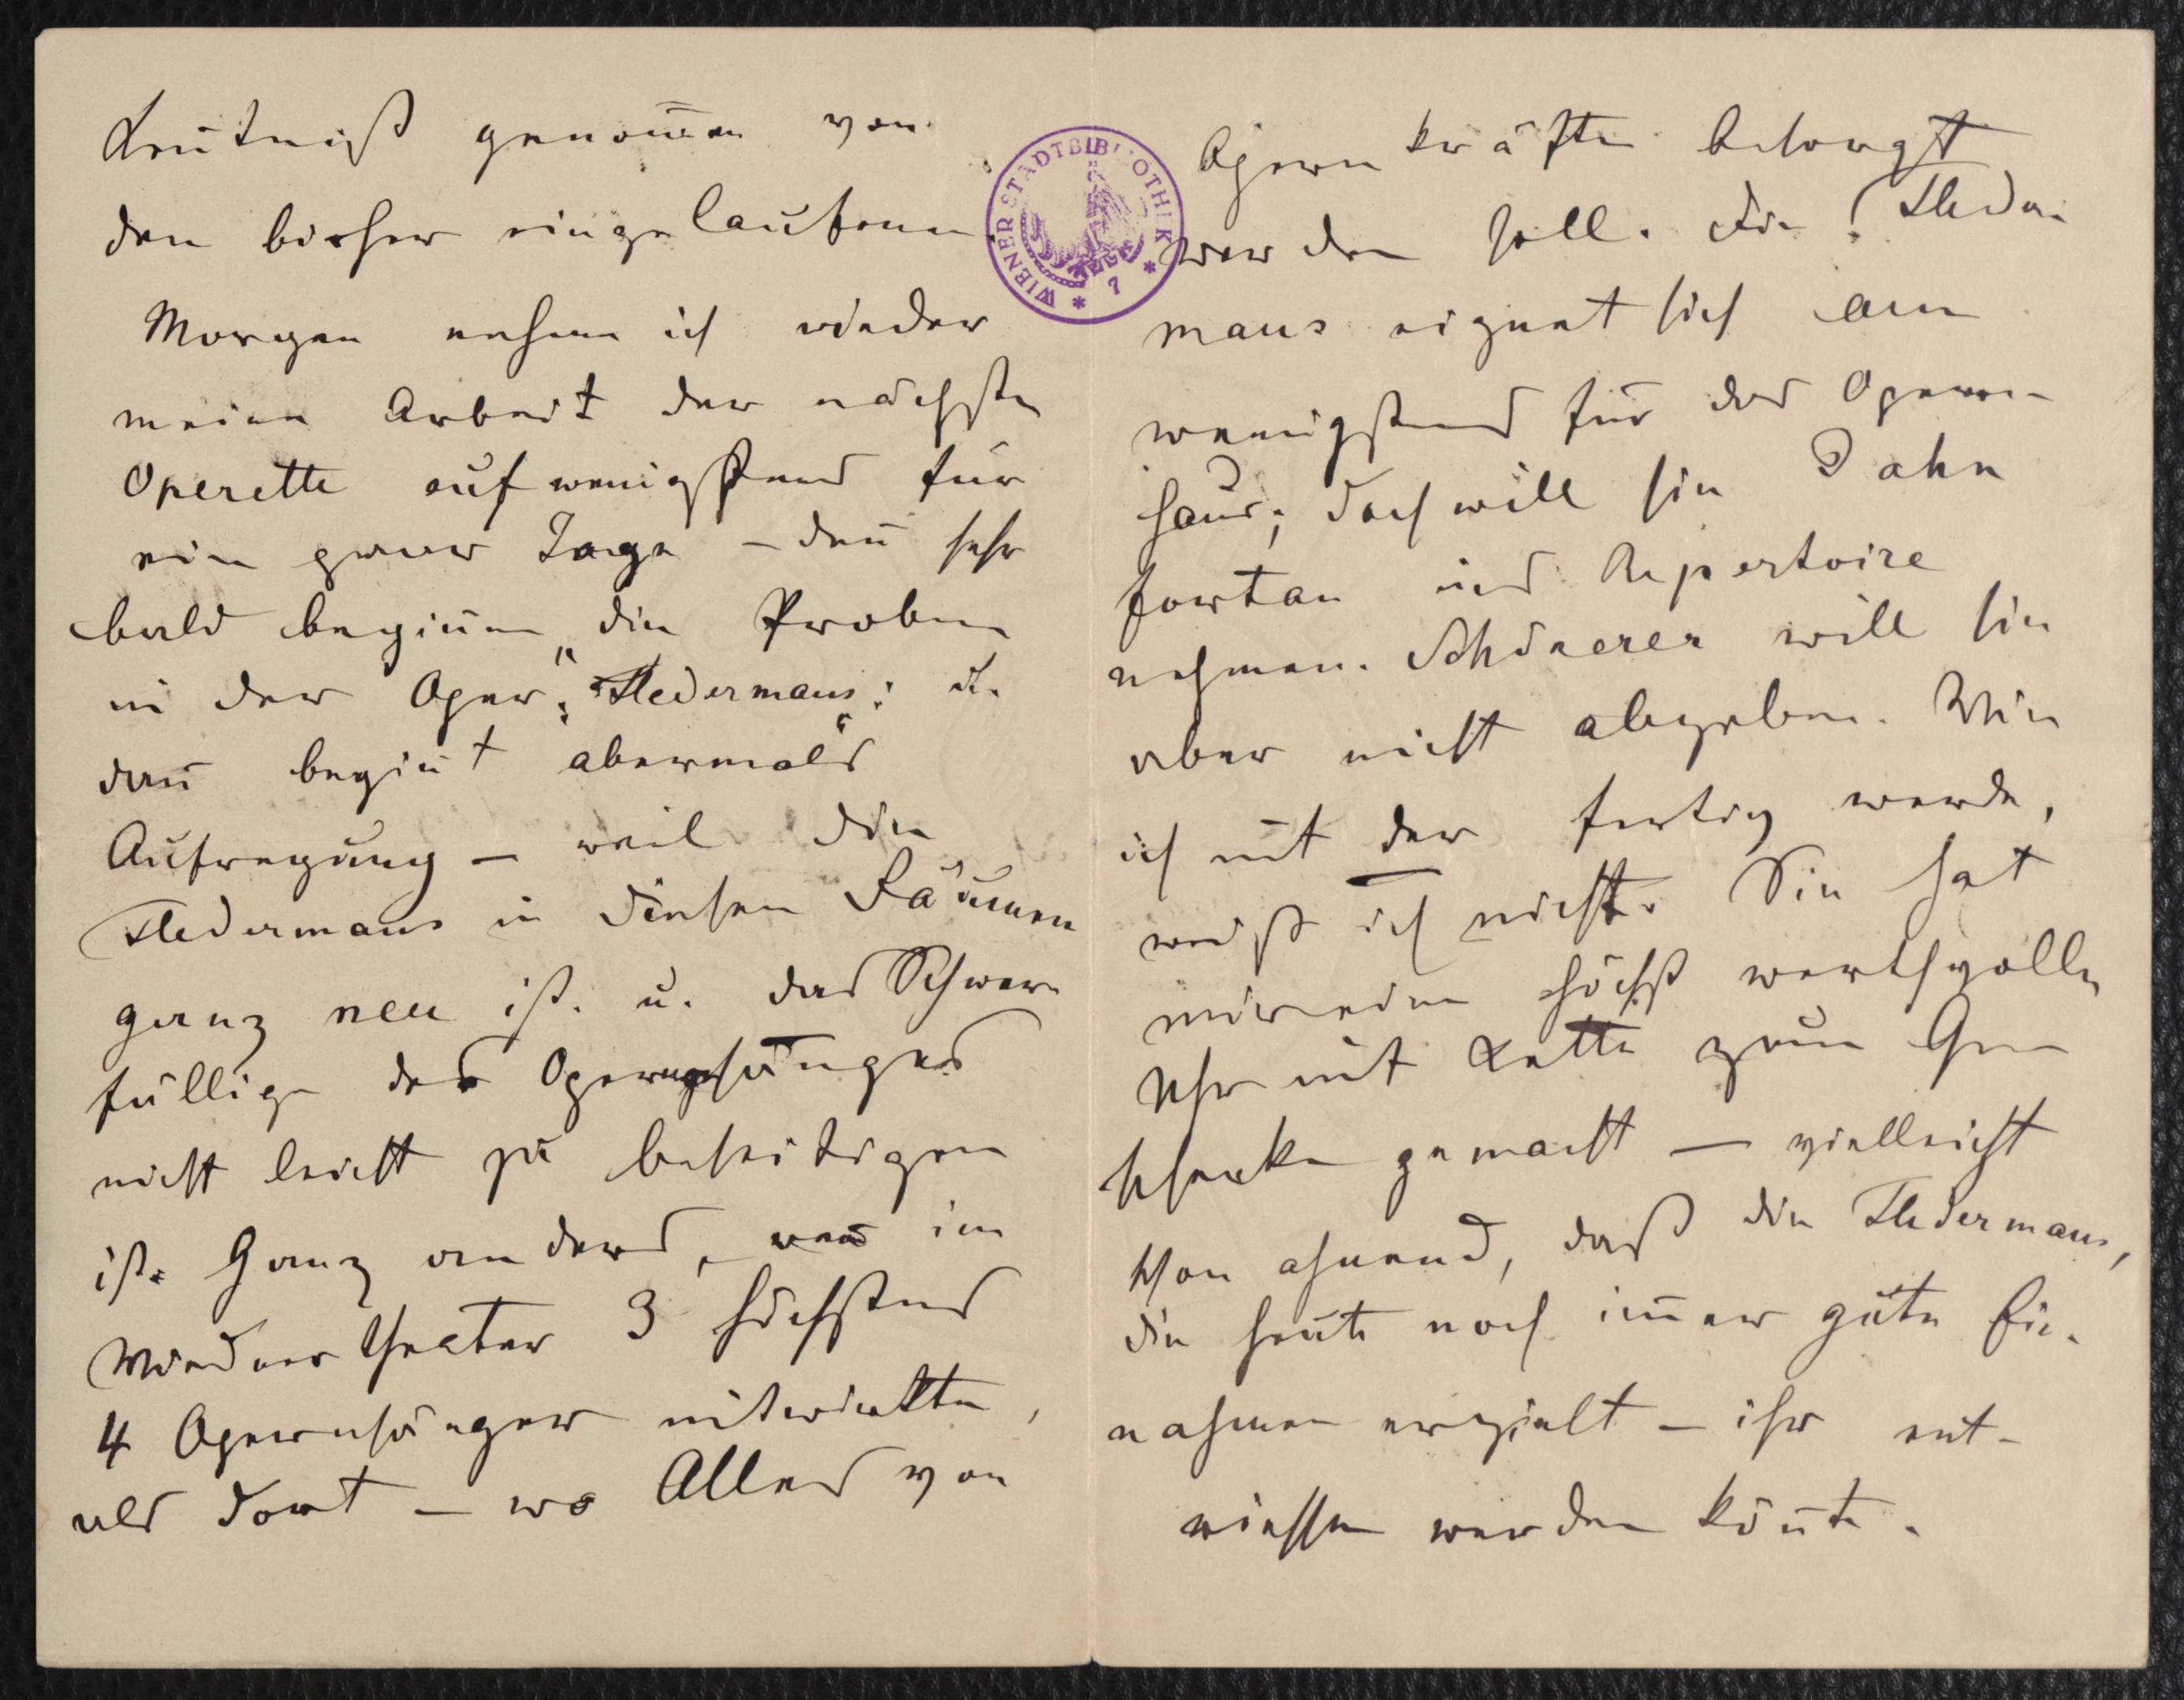 Kentniß genom̅en von
den bisher eingelaufenen.
Morgen nehme ich wieder
meine Arbeit der nächsten
Operette auf wenigstens für
ein paar Tage – den̅ sehr
bald begin̅en die Proben
in der Oper: "Fledermaus": u.
dan̅ begin̅t abermals
Aufregung – weil die
Fledermaus in diesen Räumen
ganz neu ist. u. das Schwer
fällige des Operngesanges
nicht leicht zu beseitigen
ist. Ganz anders, was im
Wiednertheater 3 höchstens
4 Opernsänger mitwirkten,
als dort – wo Alles von
WIENER STADTBIBLIOTHEK * 7 *
Opernkräften besorgt
werden soll. Die Fleder
maus eignet sich am
wenigstens für das Opern-
haus; doch will sie Jahn
fortan ins Repertoire
nehmen. Schönerer will sie
aber nicht abgeben. Wie
ich mit der fertig werde,
weiß ich nicht. Sie hat
mir eine höchst werthvolle
Uhr mit Kette zum Ge
schenke gemacht – vielleicht
schon ahnend, daß die Fledermaus,
die heute noch im̅er gute Ein-
nahmen erzielt – ihr ent-
rissen werden kön̅te.